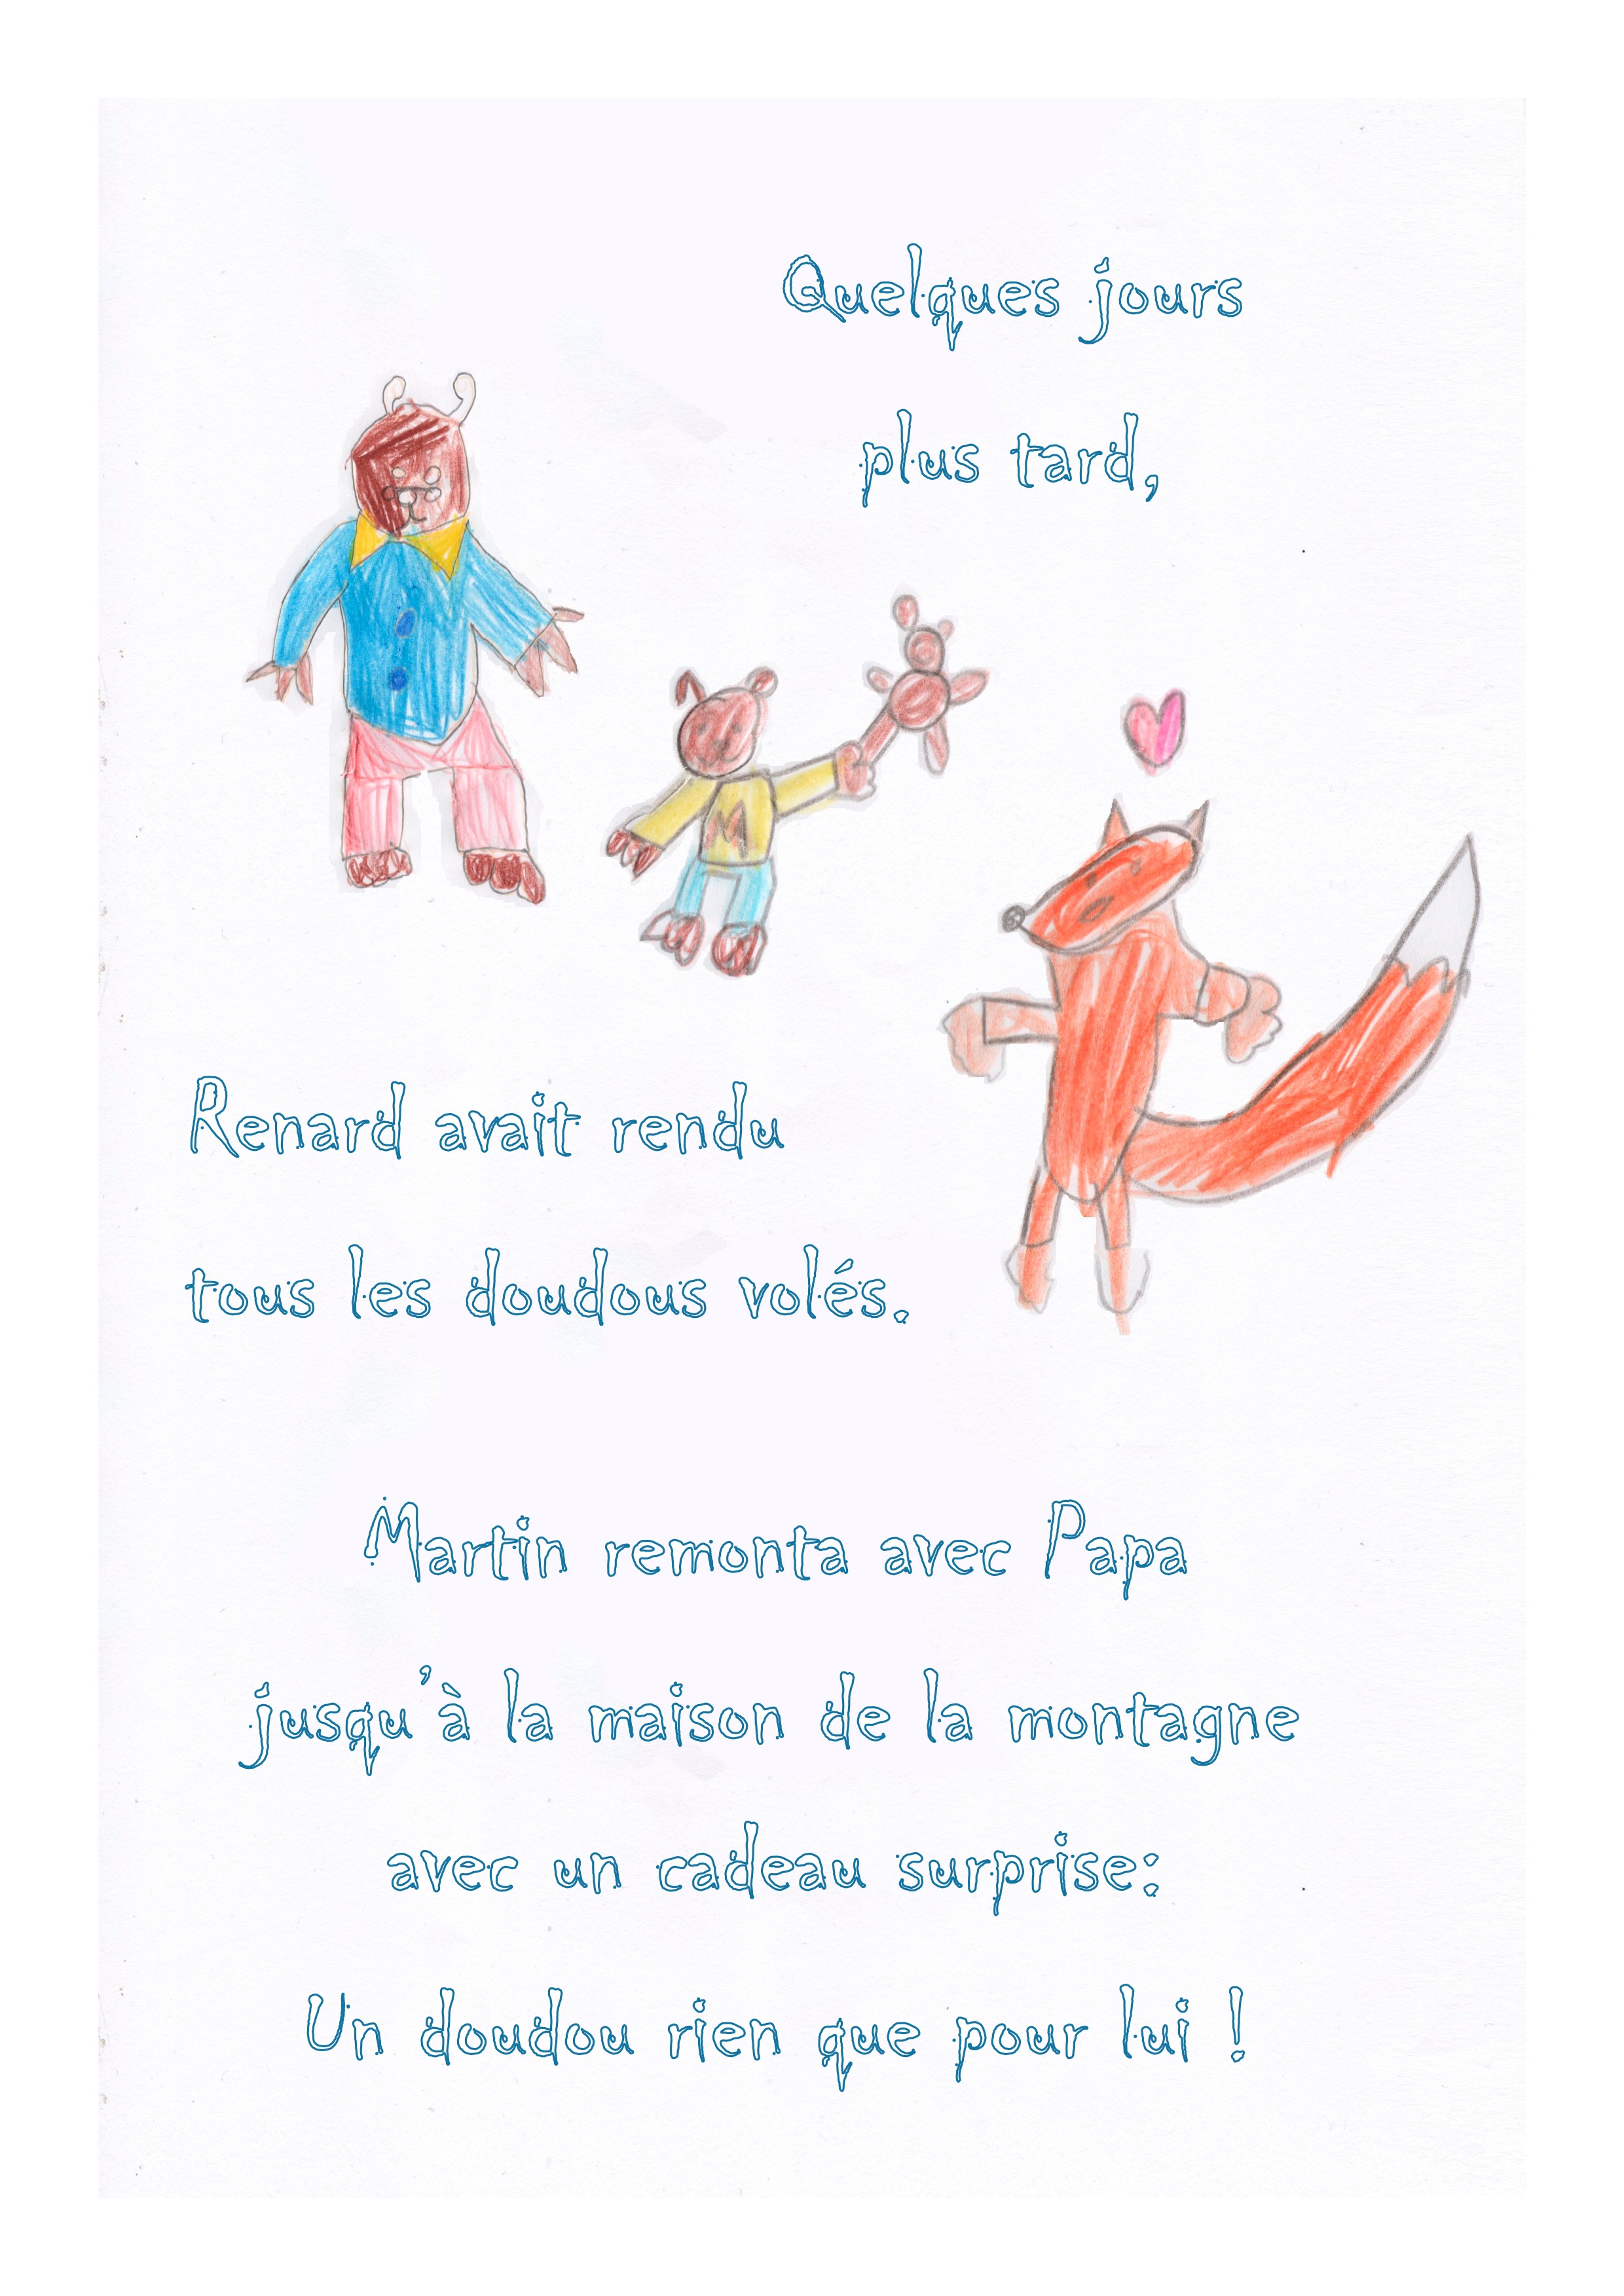 Quelques jours
plus tard,
M
Renard avait rendu
tous les doudous volés.
Martin remonta avec Papa
jusqu'à la maison de la montagne
avec un cadeau surprise:
Un doudou rien que pour lui !